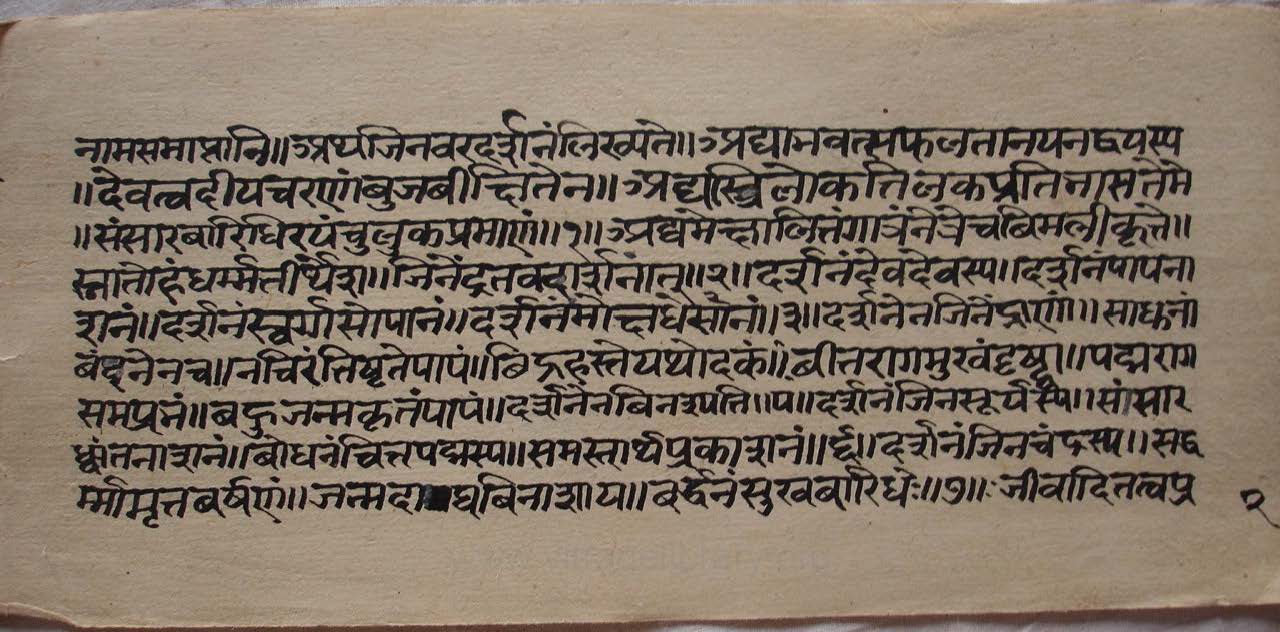 नामसमाप्तानि॥अथजिनवरदर्शनंलिख्यते॥अद्यामवत्सफलतानयनद्वयस्य
॥देवत्वदीयचरणांबुजबीक्षितेन॥अद्यस्त्रिलोकतिलकप्रतिनासतेमे
॥संसारबारिधिरयंचुलुकप्रमाणं॥१॥अद्यंमेक्षालितंगात्रंनेत्रेचबिमलीकृते॥
स्नातोहंधर्म्मतीर्थेशा॥जिनेंद्रतवदर्शनात्॥२॥दर्शनंदेवदेवस्य॥दर्शनंपापना
शनं॥दर्शनंस्वर्गसोपानं॥दर्शनंमोक्षधंसानां॥३॥दर्शनेनजिनेंद्राणां॥साधूनां
बंधनेनच॥नचिरंतिष्ठतेपापं॥छिद्रहस्तेयथोदकं॥४॥बीतरागमुखंदृष्ट्वा॥पद्मराग
समप्रनं॥बहुजन्मकृतंपापं॥दर्शनेनबिनश्यति॥५॥दर्शनंजिनसूर्यस्य॥सांसार
ध्वांतनाशनं॥बोधनंचित्तपद्मस्य॥समस्तार्थप्रकाशनं॥६॥दर्शनंजिनचंद्रस्य॥सद्ध
र्म्मामृतबर्षणं॥जन्मदाघबिनाशाय॥बर्द्धनंसुखबारिधेः॥७॥जीवादितत्वप्र
२